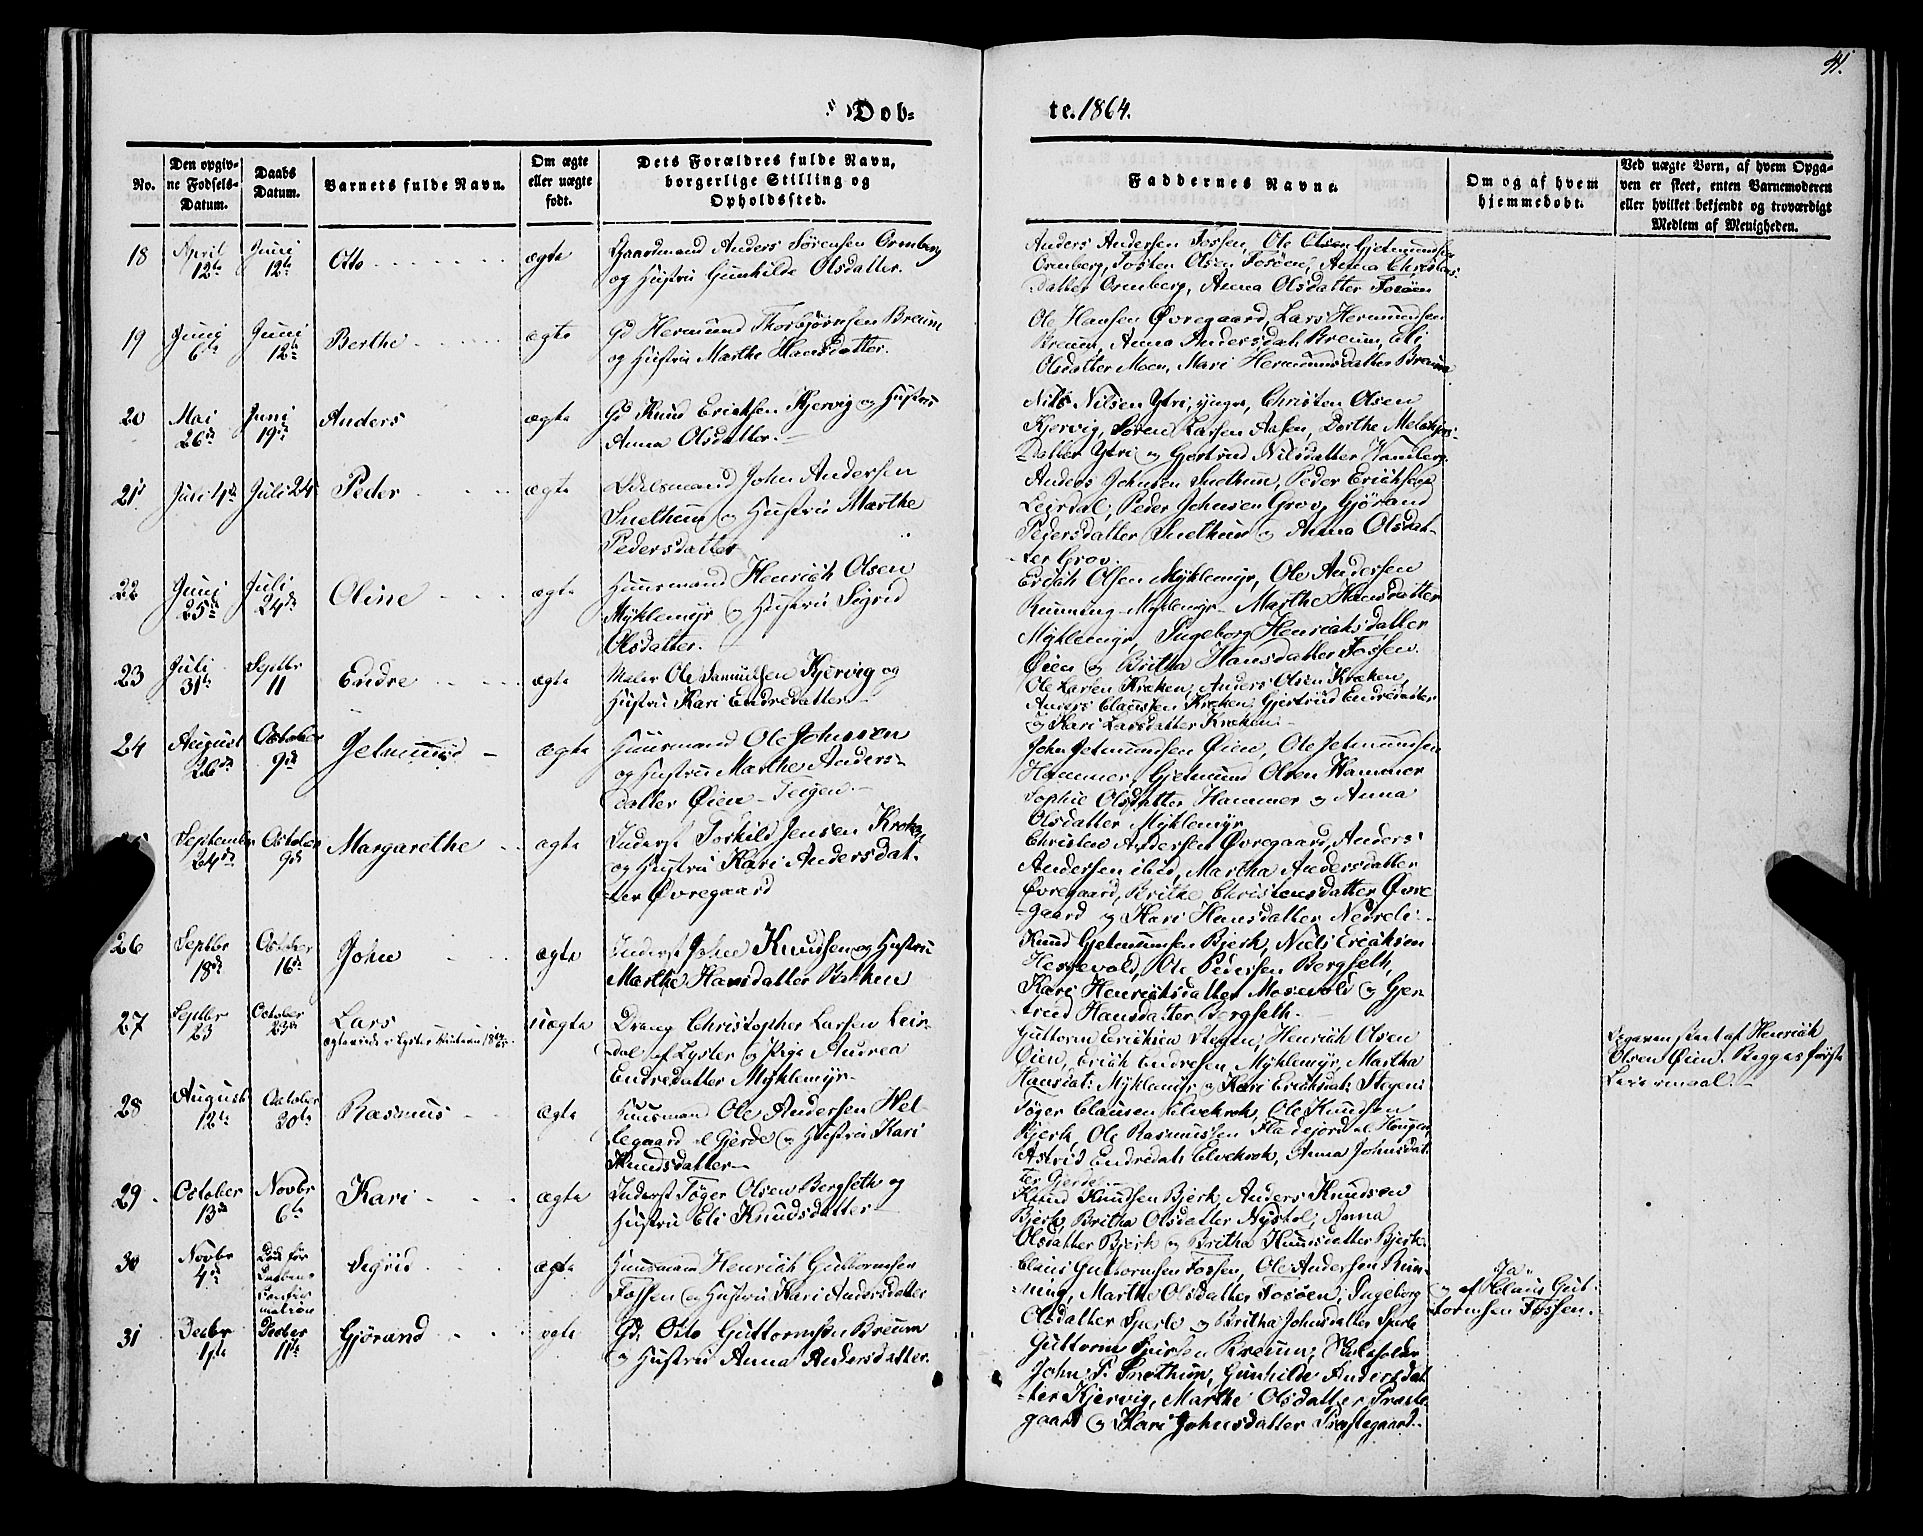 41.
Døb-
te. 1864.
No.
Den opgiv-
ne Fødsels-
Datum.
Daabs
Datum.
Barnets fulde Navn.
Om ægte
eller uægte
født.
Dets Forældres fulde Navn,
borgerlige Stilling og
Opholdssted.
Faddernes Navne.
Om og af hvem
hjemmedøbt.
Ved uægte Børn, af hvem Opga-
ven er skeet, enten Barnemoderen
eller hvilket bekjendt og troværdigt
Medlem af Menigheden.
18
April
12te
Juni
12te
Otto
ægte
Gaardmand Anders Sørensen Ormberg
og Hustru Gunhilde Olsdatter.
Anders Andersen Fossen, Ole Olsen Gjetmundsen
Ormberg, Tosten Olsen Fosøen, Anna Christens-
datter Ormberg, Anna Olsdatter Fosøen
19
Juni
6te
Juni
12te
Berthe
ægte
Gd Hermund Thorbjørnsen Breum
og Hustru Marthe Hansdatter.
Ole Hansen Øvregaard, Lars Hermundsen
Breum, Anna Andersdat. Breum, Eli
Olsdatter Moen, Mari Hermunsdatter Breum
20
Mai
26de
Juni
19de
Anders
ægte
Gd Knud Erichsen Kjervig og Hustru
Anna Olsdatter.
Nils Nilsen Ytri, yngre, Christen Olsen
Kjervig, Søren Larsen Aasen, Dorthe Melchjors-
datter Ytri og Gjertrud Nilsdatter Hamberg.
21
Juli 4de
Juli 24
Peder
ægte
Ødelsmand John Andersen
Snethun og Hustru Marthe
Pedersdatter
Anders Johnsen Snethun, Peder Erichsen
Leirdal, Peder Johnsen Grov, Gjørand
Pedersdatter Snethun og Anna Olsdat-
ter Grov.
22
Juni
25de
Juli
24de
Oline
ægte
Huusmand Henrich Olsen
Myklemyr og Hustru Sigrid
Olsdatter.
Erich Olsen Myklemyr, Ole Andersen
Rumning-Myklemyr Marthe Hansdatter
Myklemyr, Ingeborg Henrichsdatter
Øien og Britha Hansdatter Fossen.
23
Juli
31te
Septbr
11
Endre
ægte
Maler Ole Samuelsen Kjervig og
Hustru Kari Endredatter
Ole Larsen Kroken, Anders Olsen Kroken,
Anders Claussen Kroken, Gjertrud Endredatter
og Kari Larsdatter Kroken.
24
August
26de
October
9de
Jetmund
ægte
Huusmand Ole Johnsen
og Hustru Marthe Anders-
datter Øien-Teigen.
John Jetmundsen Øien, Ole Jetmundsen
Hammer, Gjetmund Olsen Hammer
Sophie Olsdatter Hammer og Anna
Olsdatter Myklemyr
September
24de
October
9de
Margarethe
ægte
Inderst Torkild Jensen Kroken
og Hustru Kari Andersdat-
ter Øvregaard
Christen Andersen Øvregaard, Anders
Andersen ibid, Martha Andersdatter
Øvregaard, Brithe Christensdatter Øvre
gaard og Kari Hansdatter Nedreli.
26
Septbr
18de
October
16de
John
ægte
Inderst John Knudsen og Hustru
Marthe Hansdatter Bakken
Knud Gjetmundsen Bjerk, Niels Erichsen
Hessevold, Ole Pedersen Bergseth,
Kari Henrichsdatter Mosevold og Gjer-
trud Hansdatter Bergseth.
27
Septbr
23
October
23de
Lars
uægte
Dreng Christopher Larsen Leir-
dal af Lyster og Pige Andrea
Endredatter Myklemyr
Guttorm Erichsen Stegen, Henrich Olsen
Øien, Erich Endresen Myklemyr, Martha
Hansdat: Myklemyr og Kari Erichsdat: Stegen
Opgaven skeet af Henrich
Olsen Øien. Begges første
Leiermaal.
28
August
12te
October
30te
Rasmus
ægte
Huusmand Ole Andersen Hel-
legaard el Gjerde og Hustru Kari
Knudsdatter
Tøger Clausen Elvekrok, Ole Knudsen
Bjerk, Ole Rasmussen Fladejord el Hougen,
Astrid Endredat. Elvekrok, Anna Johnsdat-
ter Gjerde
29
October
13de
Novbr
6te
Kari
ægte
Inderst Tøger Olsen Bergseth og
Hustru Eli Knudsdatter
Knud Knudsen Bjerk, Anders Knudsen
Bjerk, Britha Olsdatter Nystøl, Anna
Olsdatter Bjerk og Britha Knudsdatter Bjerk.
30
Novbr
4de
Død før
Daabens
Confir
mation
Sigrid
ægte
Huusmann Henrich Guttormsen
Fossen og Hustru Kari Andersdatter
Claus Guttormsen Fossen, Ole Andersen Rum-
ning, Marthe Olsdatter Fosøen, Ingeborg
Olsdatter Sperle og Britha Johnsdatter Sperle
Ja
og af Claus Gut-
tormsen Fossen.
31
Decbr
1ste
Decbr
11te
Gjørand
ægte
Gd. Otto Guttormsen Breum
og Hustru Anna Andersdatter.
Guttorm Breum, Skoleholder
John P. Snethun, Gunhilde Andersdat
ter Kjervig, Marthe Olsdatter Præste-
gaard og Kari Johnsdatter Præstegaard.